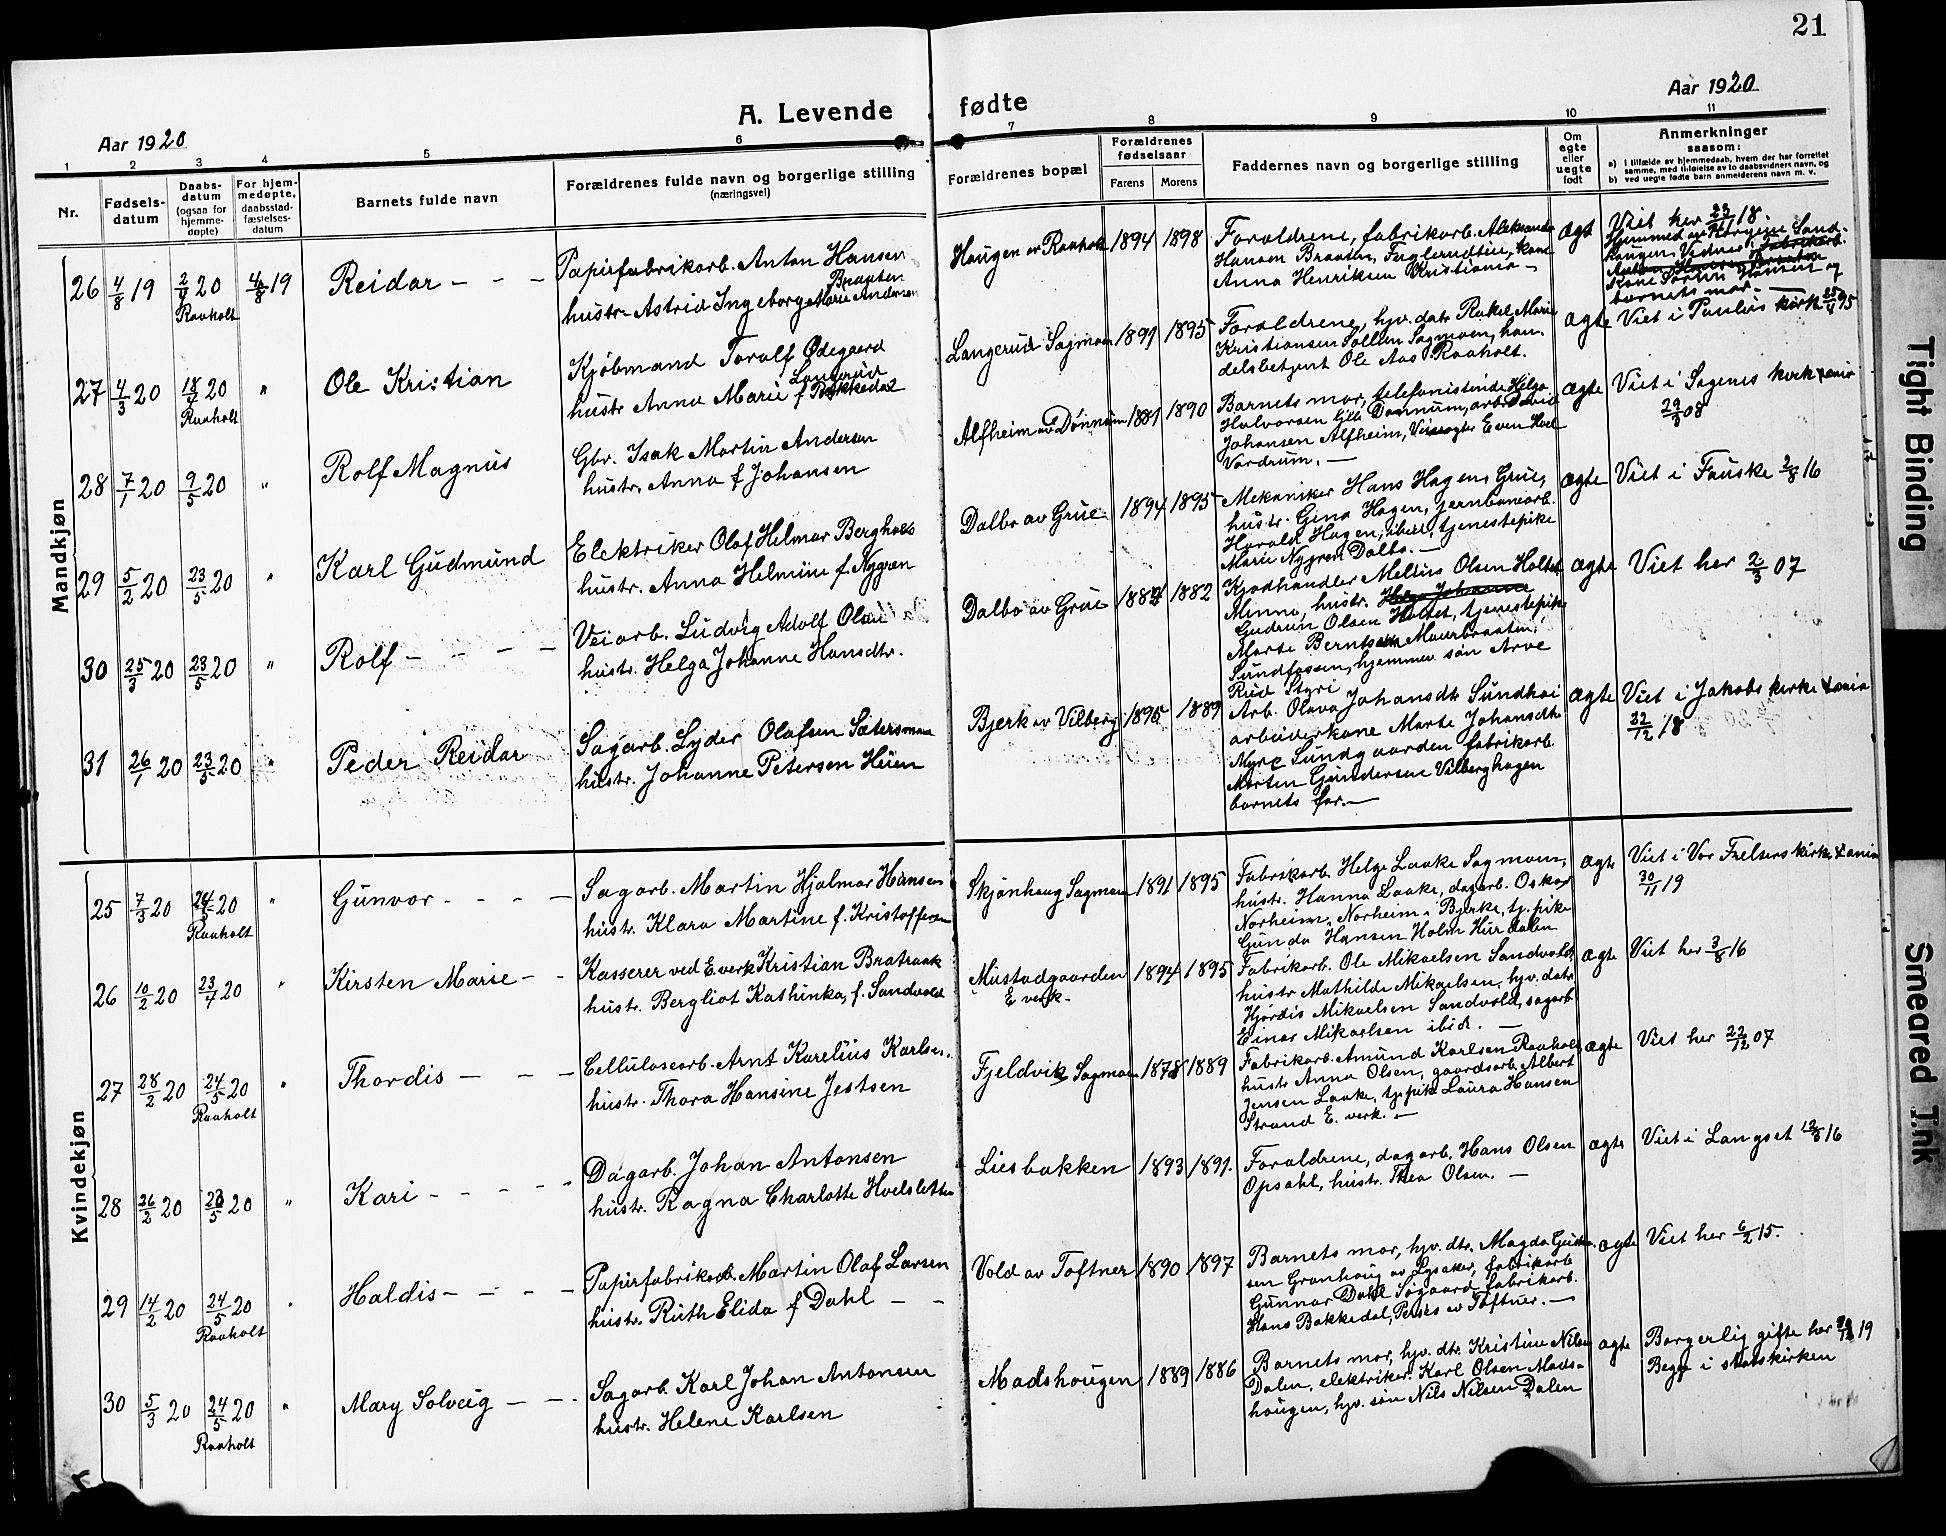 21
Aar 1920
A. Levende fødte
Aar 1920
1 2 3 4 5 6 7 8 9 10 11
Nr.
Fødsels-
datum
Daabs-
datum
(ogsaa for
hjemme-
døpte)
For hjem-
medøpte,
daabsstad-
fæstelses-
datum
Barnets fulde navn
Forældrenes fulde navn og borgerlige stilling
(næringsvei)
Forældrenes bopæl
Forældrenes
fødselsaar
Farens Morens
Faddernes navn og borgerlige stilling
Om
ægte
eller
uegte
født
Anmerkninger
saasom:
a) i tilfælde av hjemmedaab, hvem der har forrettet
samme, med tilføielse av to daabsvidners navn, og
b) ved uegte fødte barn anmelderens navn m. v.
Mandkjøn
26 4/8 19 2/4 20 4/8 19 Reidar
Raaholt
Papirfabrikarb. Anton Hansen
Braaten
hustr. Astrid Ingeborg Marie Andersen
Haugen av Raaholt 1894 1898
Forældrene, fabrikarb. Aleksander
Hansen Braaten, Fuglerudtien, kone
Anna Henriksen Kristiania
ægt
Viet her 23/11 18.
barnets mor.
27 4/3 20 18/4 20 " Ole Kristian
Raaholt
Kjøbmand Toralf Ødegaard
Langerud
hustr Anna Marie f Bakkedal
Langerud Sagmoen 1891 1895
Forældrene, hjv. datr Rakel Marie
Kristiansen Sollien Sagmoen, han-
delsbetjent Ole Aas Raaholt.
ægte
Viet i Paulus kirk 25/4 95
28 7/1 20 9/5 20 " Rolf Magnus
Gbr. Isak Martin Andersen
hustr. Anna f Johansen
Alfheim av Dønnum 1881 1890
Barnets mor, telefonistinde Helga
Halvorsen Lille Dønnum, arb. David
Johansen Alfheim, Veivogter Even Hoel
Vordrum.
ægte
Viet i Sagenes kirk Xania
29/3 08
29 5/2 20 23/5 20 " Karl Gudmund
Elektriker Olaf Helmar Berghols
hustr. Anna Helmine f. Nygren
Dalbo av Grue 1894 1895
Mekaniker Hans Hagen, Grue,
hustr. Gina Hagen, jernbanearb.
Harald Hagen, ibid, tjenestepike
Marie Nygren Dalbo.
ægte
Viet i Fauske 2/8 16
30 25/3 20 23/5 20 " Rolf
Veiarb. Ludvig Adolf Olsen
hustr. Helga Johanne Hansdtr.
Dalbo av Grue 1884 1882
Kjødhandler Melius Olsen Holtet
Minne, hustr. Helga Johanne
Gudrun Olsen Holtet, tjenestepike
Marte Berntsen Maurbraaten,
Sundfossen, hjemmev. søn Arve
Rud Styri
ægte
Viet her 2/3 07
31 26/1 20 23/5 20 " Peder Reidar
Sagarb. Lyder Olafsen Sætersmoen
hustr. Johanne Petersen Huen
Bjerk av Vilberg 1895 1889
Arb. Olava Johansdtr Sundhai
arbeiderkone Marte Johansdtr
Myre Sundgaarden fabrikarb.
Morten Gundersen Vilberghagen
barnets far.
ægte
Viet i Jakobs kirke Xania
/12 18
Kvindekjøn
25 7/3 20 24/5 20 " Gunvor
Raaholt
Sagarb. Martin Hjalmar Hansen
hustr. Klara Martine f. Kristoffersen
Skjønhaug Sagmoen 1891 1895
Fabrikarb. Helge Laake Sagmoen,
hustr. Hanna Laake, dagarb. Oskar
Norheim, Norheim i Bjerke, tj. pike
Gunda Hansen Holm Hurdalen
ægte
Viet i Vor Frelsers kirke Xania
30/11 19
26 10/2 20 23/4 20 " Kirsten Marie
Kasserer ved E.verk Kristian Bratraak
hustr. Bergliot Kathinka, f. Sandvold
Mustadgaarden 1894 1895
E verk
Fabrikarb. Ole Mikaelsen Sandvold,
hustr Mathilde Mikaelsen, hjv. datr.
Hjørdis Mikaelsen Sandvold, sagarb
Einar Mikaelsen ibid.
ægte
Viet her 3/8 16
27 28/2 20 24/5 20 " Thordis
Raaholt
Cellulosearb. Arnt Karelius Karlsen.
hustr. Thora Hansine Jestsen
Fjeldvik Sagmoen 1878 1889
Fabrikarb. Amund Karlsen Raaholt,
hustr Anna Olsen, gaardsarb. Albert
Jensen Laake, tj. pike Laura Hansen
Strand E. verk.
ægte
Viet her 22/12 07
28 26/2 20 23/5 20 " Kari
Dagarb. Johan Antonsen
hustr. Ragna Charlotte Hoelsletten
Liesbakken 1893 1891.
Forældrene, dagarb. Hans Olsen
Opsahl, hustr. Thea Olsen.
ægte
Viet i Langset 12/3 16
29 14/2 20 24/5 20 Haldis
Raaholt
Papirfabrikarb. Martin Olaf Larsen
hustr. Ruth Elida f Dahl
Vold av Tøftner 1890 1897
Barnets mor, hjv. dtr. Magda Gulik-
sen Granhaug av Lysaker, fabrikarb
Gunnar Dahl Søgaard fabrikarb.
Hans Bakkedal, Persrs av Tøftner.
ægte
Viet her 6/2 15.
30 5/3 20 24/5 20 " Mary Solveig
Raaholt
Sagarb. Karl Johan Antonsen
hustr. Helene Karlsen
Madshaugen 1889 1886
Barnets mor, hjv. dtr. Kristine Nilsen
Dalen, elektriker Karl Olsen Mads-
haugen, hjv. søn Nils Nilsen Dalen
ægte
Borgerlig gifte her 19
Begge i statskirken
Tight Binding
Smeared Ink